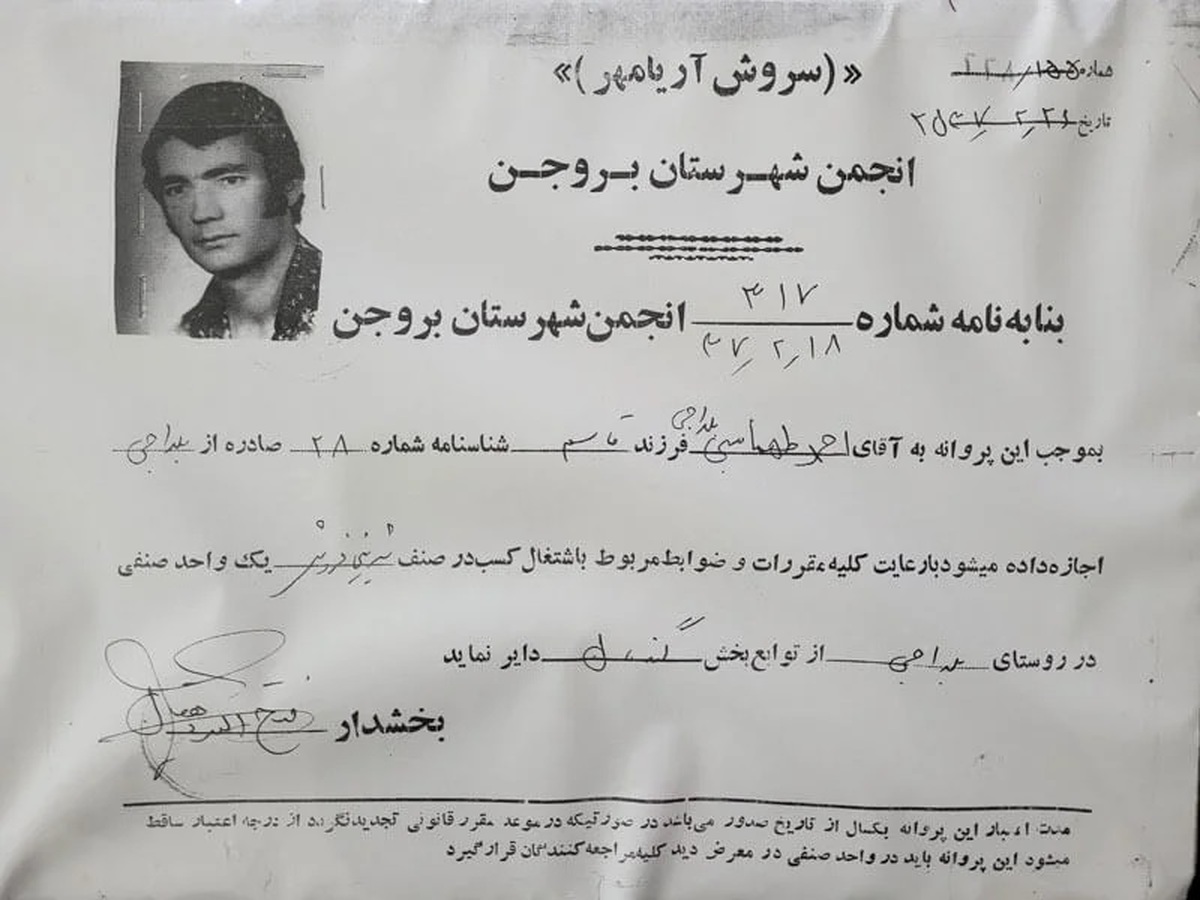 « (سروش آریامهر) »
شماره
تاریخ
انجمن شهرستان بروجن
بنابه نامه شماره ۳۱۷ ۳۷/۲/۱۸ انجمن شهرستان بروجن
بموجب این پروانه به آقای احمد طهماسبی بلداجی فرزند قاسم شناسنامه شماره ۲۸ صادره از بلداجی
اجازه داده میشود بارعایت کلیه مقررات و ضوابط مربوط باشتغال کسب در صنف شیرینی فروشی یک واحد صنفی
در روستای بلداجی از توابع بخش گندمان دایر نماید
بخشدار
مدت اعتبار این پروانه یکسال از تاریخ صدور می‌باشد در صورتیکه در موعد مقرر قانونی تجدید نگردد از درجه اعتبار ساقط
میشود این پروانه باید در واحد صنفی در معرض دید کلیه مراجعه کنندگان قرار گیرد